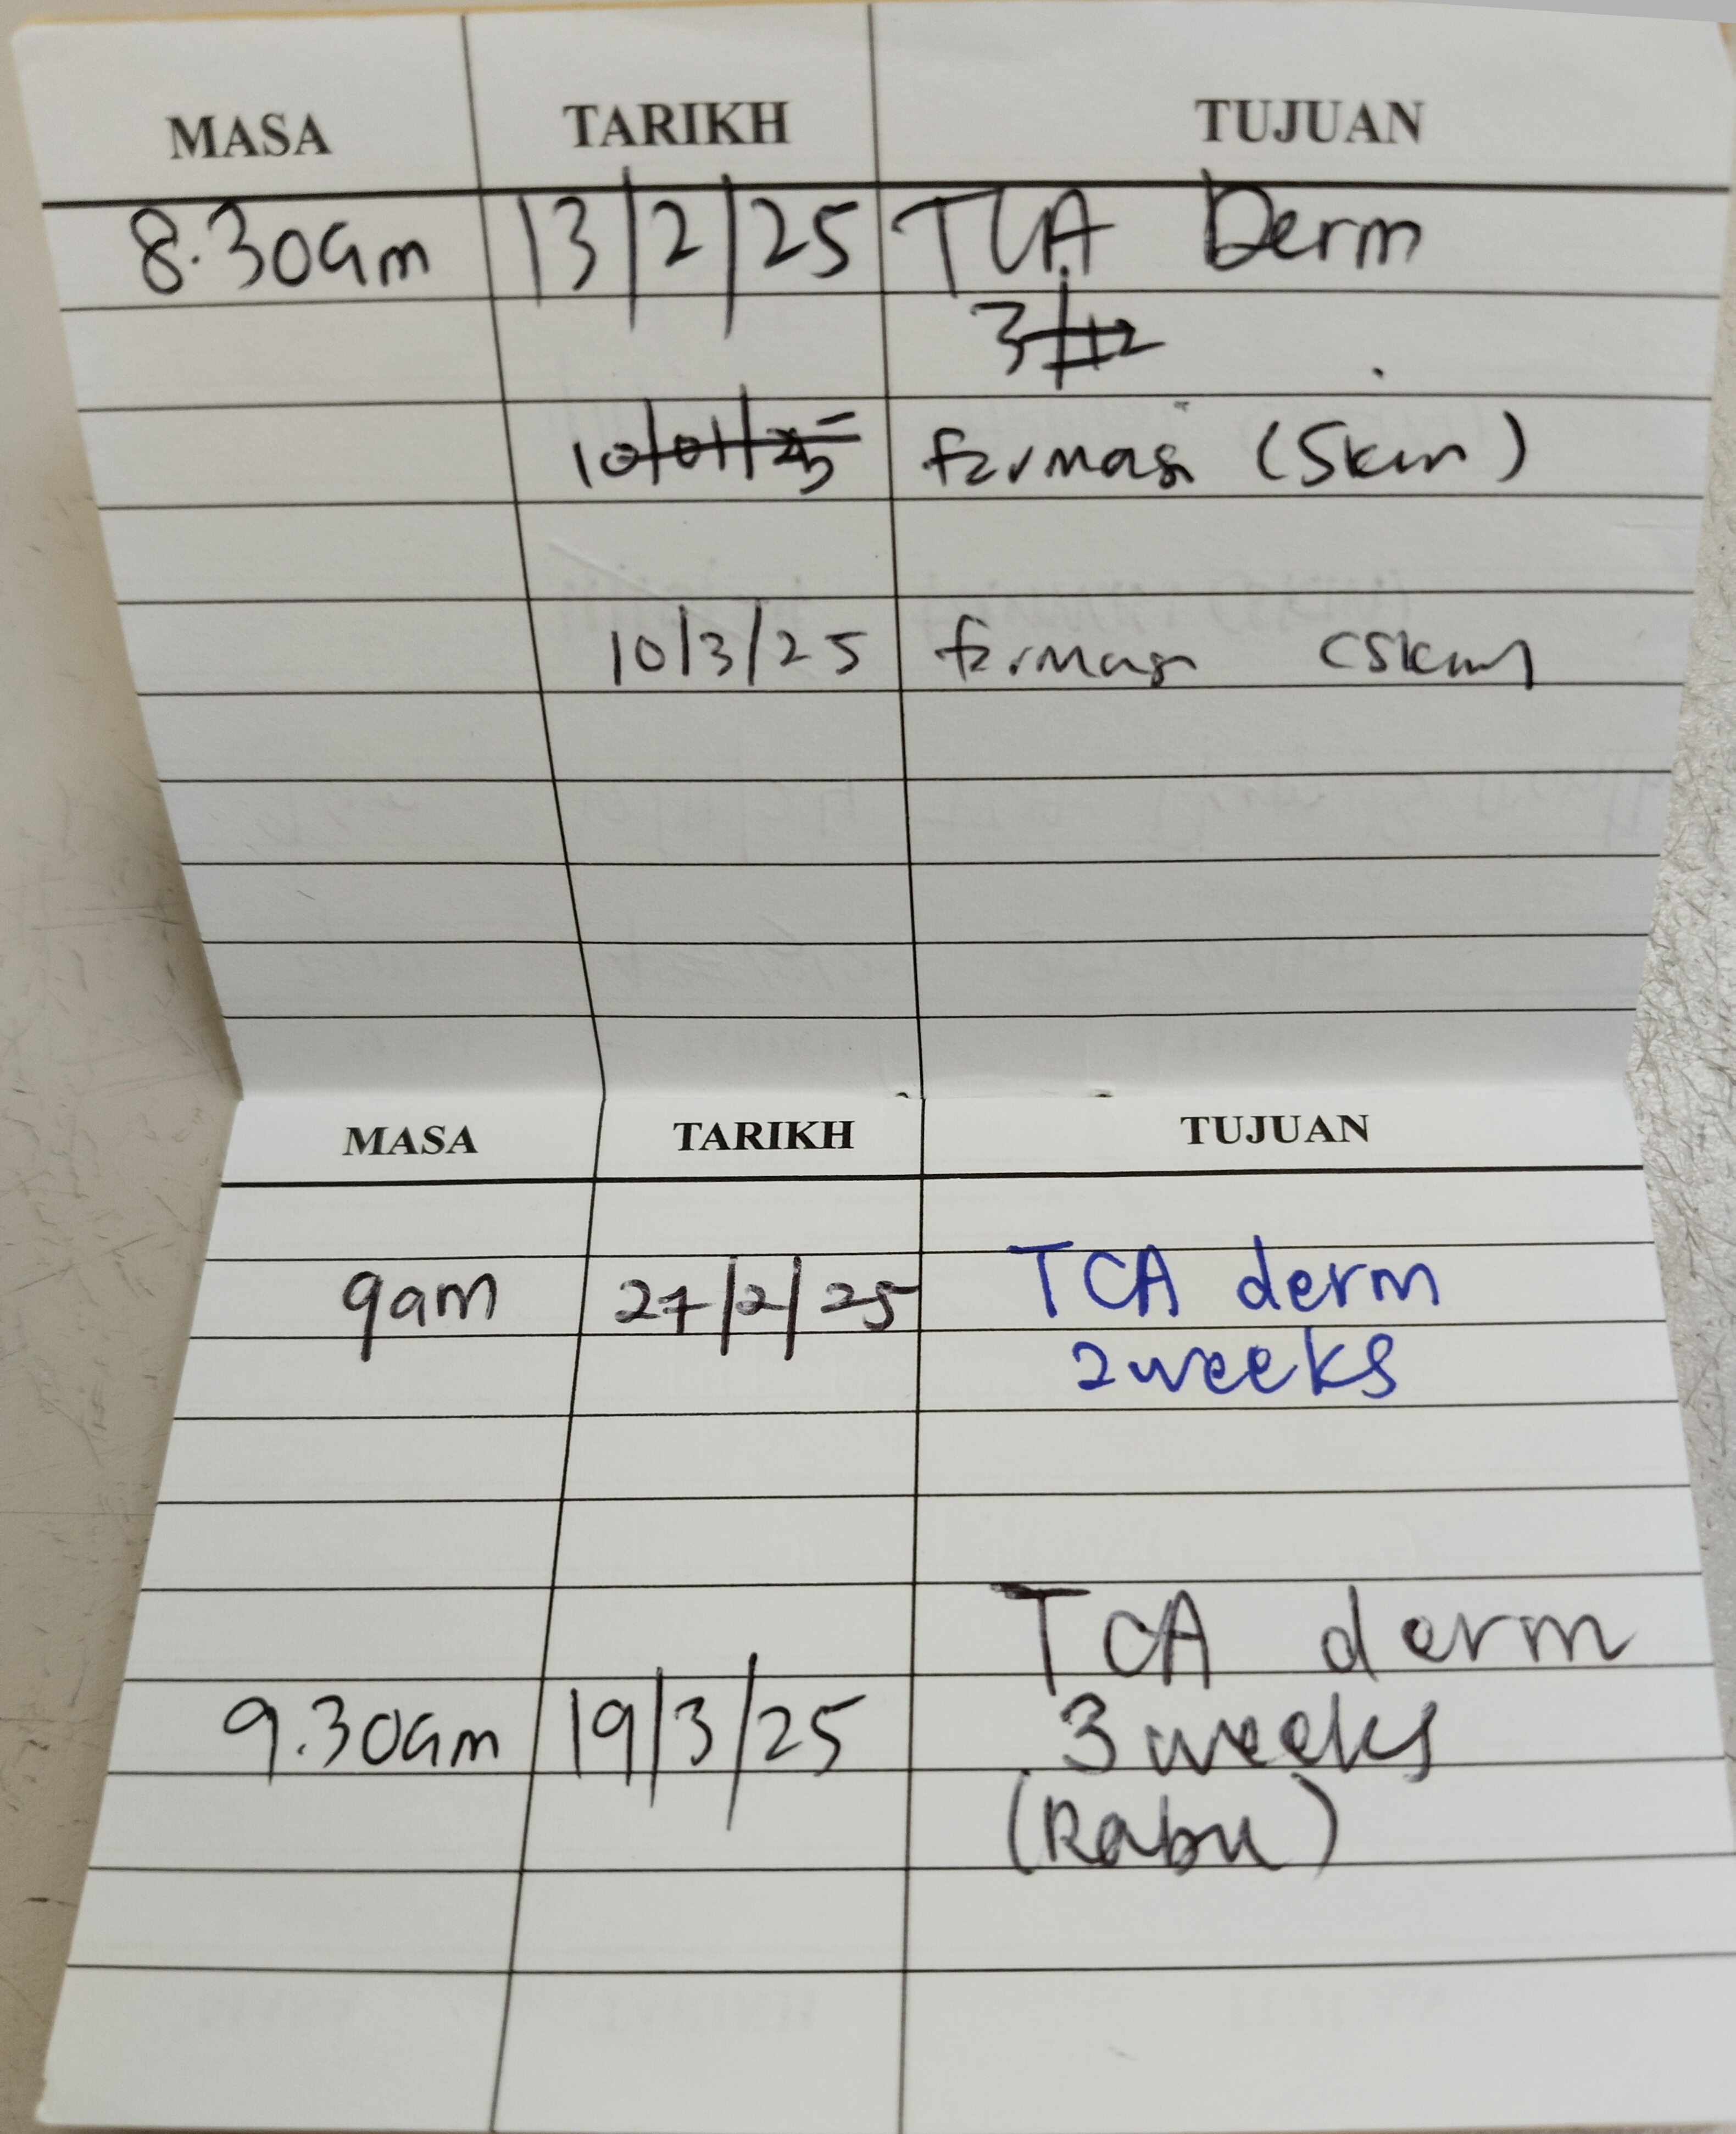 MASA TARIKH TUJUAN
8.30am 13/2/25 TCA Derm
3/12
10/01/25 farmasi (Skin)
10/3/25 farmasi (Skin)
MASA TARIKH TUJUAN
9am 27/2/25 TCA derm
2 weeks
TCA derm
9.30am 19/3/25 3 weeks
(Rabu)